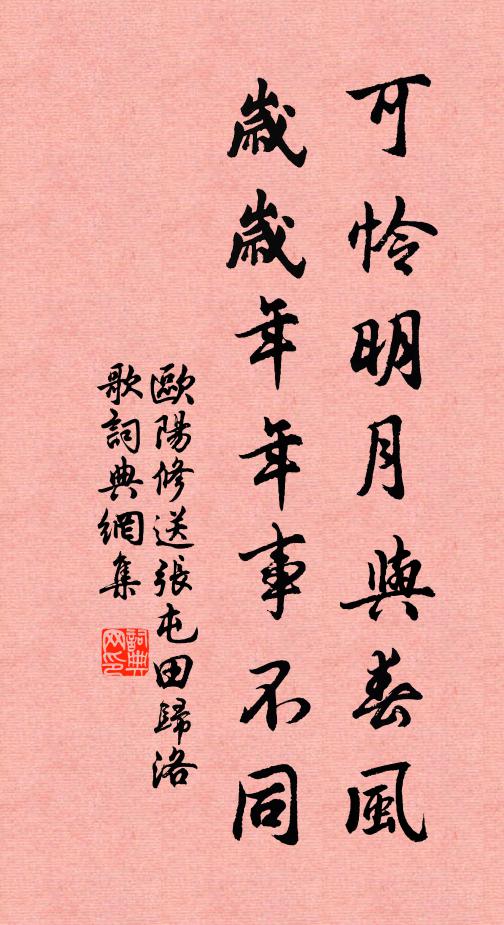 可怜明月與春風
歲歲年年事不同
歐陽修送張屯田歸洛
歌詞典網集
詞典網印